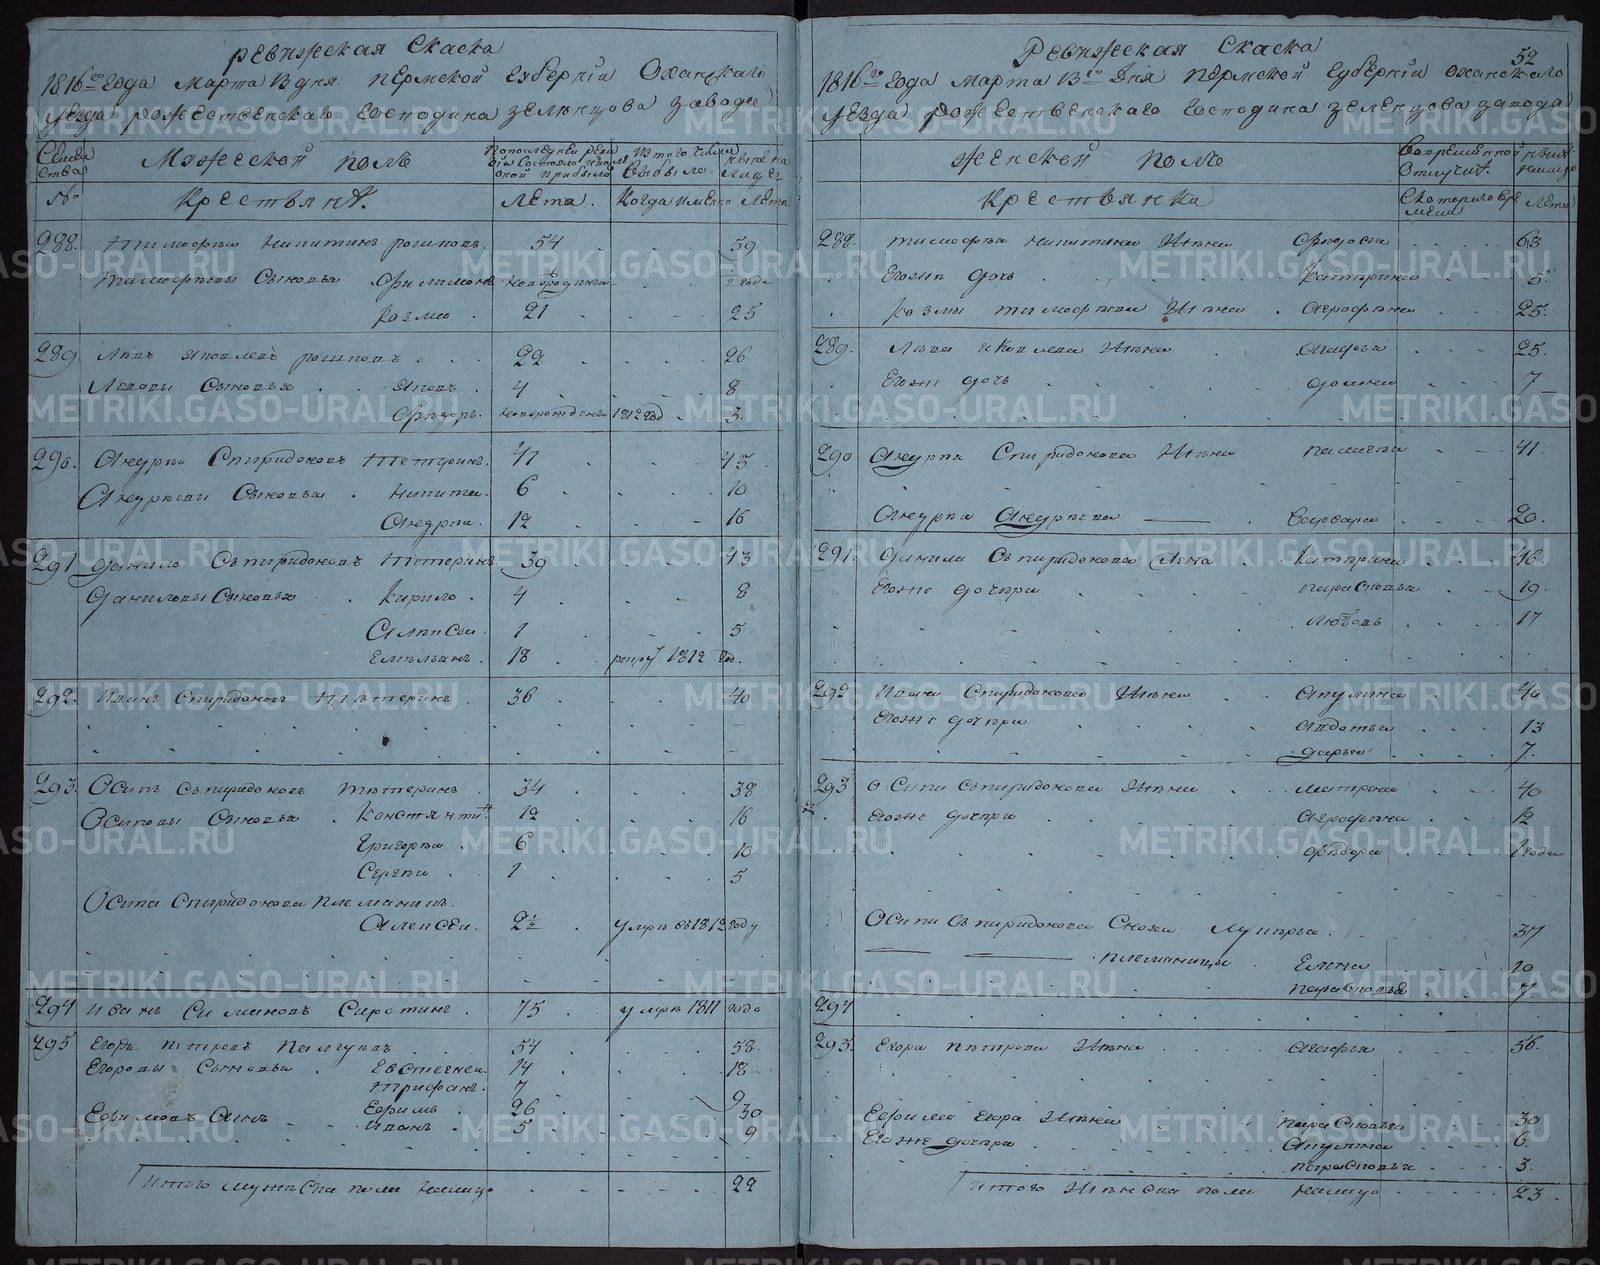 Ревижская Скаска
1816го Года Марта 13 дня Пермской губернии Оханскаго
уезда рожественскаго Господина зеленцова завода
Семействa
Мужеской полъ
По последней ревизии состояло и после оной прибыло
Из того числа выбыло
Ныне на лицо
№
Крестьянъ
Лета
Когда имено
Лета
288. Тимофеи Никитинъ рогиповъ 54 59
Тимофеевы Сыновья Филимонъ новорожденъ 2 года
Козма 21 25
289. Левъ Яковлевъ рогиповъ 22 26
Львовы Сыновья Яковъ 4 8
Федоръ новорожденъ 1812 год 3
290. Андреи Спиридоновъ Тетеринъ 41 45
Андреевы Сыновья Никита 6 10
Андреи 12 16
291 Данило Спиридоновъ Тетеринъ 39 43
Даниловы Сыновья Кирило 4 8
Алексеи 1 5
Емельянъ 18 рекру 1812 го
292. Иванъ Спиридоновъ Тетеринъ 36 40
293. Осипъ Спиридоновъ Тетеринъ 34 38
Осиповы Сыновья Константинъ 12 16
Григореи 6 10
Сергеи 1 5
Осипа Спиридонова племяникъ
Алексеи 21 умре въ 1812 году
294 Иванъ Симановъ Сиротинъ 75 умре 1811 года
295 Егоръ Петровъ 54 58
Егоровы Сыновья Евстегнеи 14 18
Трифанъ 7 9
Ефимъ 26 30
Ефимовъ Сынъ Иванъ 5 9
Итого мужеска пола налицо 22
Ревижская Скаска
52
1816го Года Марта 13го Дня Пермской губернии Оханскаго
уезда рожественскаго Господина зеленцова завода
Женской полъ
Во временной отлучке
Ныне налицо
Крестьянки
С котораго времени
Лета
288. Тимофея Никитина Жена Федосья 63
Егоже дочь Катерина 5.
Козмы Тимофеева Жена Аграфена 25.
289. Льва Яковлева Жена Агафья 25.
Егоже дочь Домна 7
290 Андрея Спиридонова Жена Паладья 41
Андрея Андреева — Варвара 20.
291. Данила Спиридонова Жена Катерина 46.
Егоже дочери Парасковья 19.
Любовь 17
292 Ивана Спиридонова Жена Акулина 40
Егоже дочери Авдотья 13
Дарья 7.
293 Осипа Спиридонова Жена Матрена 40
Егоже дочери Аграфена 12
Федора 1 года
Осипа Спиридонова Сноха Лукерья 37
— — племяницы Елена 10
Парасковья 7.
294
295. Егора Петрова Жена Агафья 56.
Ефима Егора Жена Парасковья 30
Егоже дочери Акулина 6.
Парасковья 3.
Итого Женска пола налицо 23.
METRIKI.GASO-URAL.RU